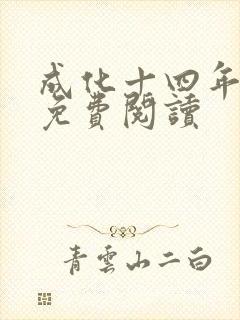 成化十四年
免費閱讀
青雲山二白